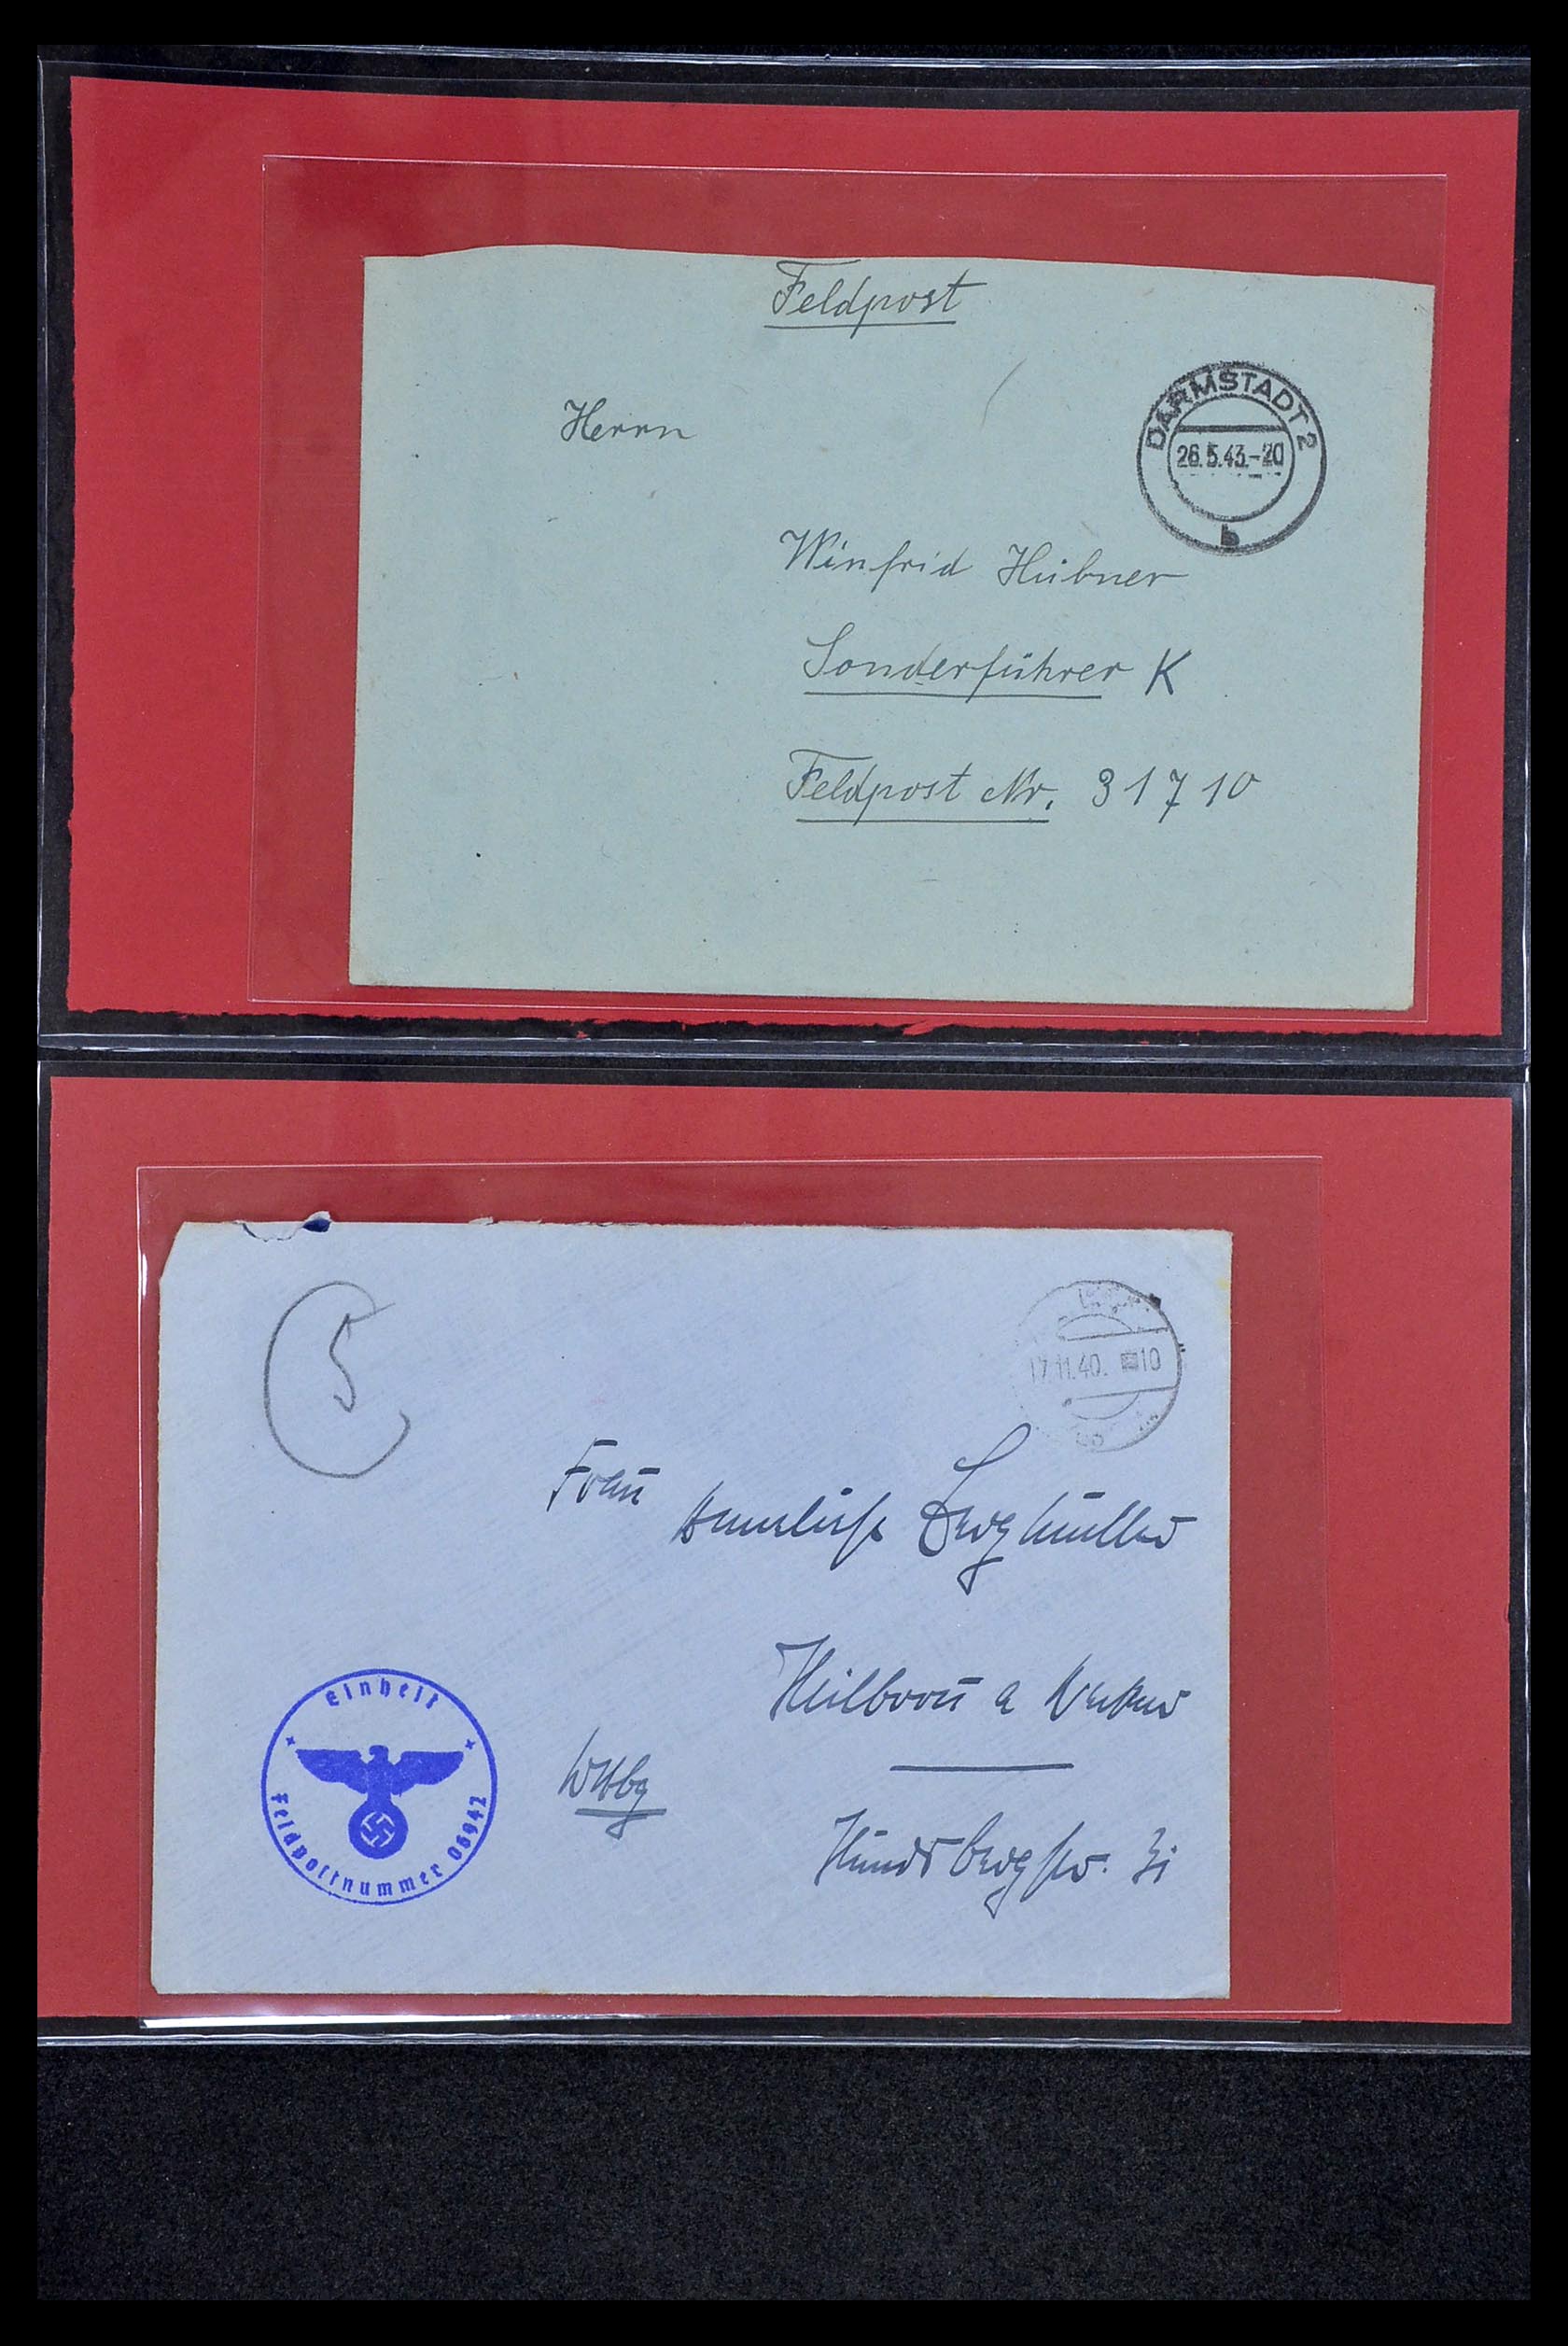 Feldpost
DARMSTADT 2
26.5.43.-20
b
Herrn
Winfrid Hübner
Sonderführer K
Feldpost Nr. 31710
5
17.11.40. 10
Frau
Anneliese Bergmüller
Heilbronn a Neckar
Wttbg
Einheit
Feldpostnummer 06942